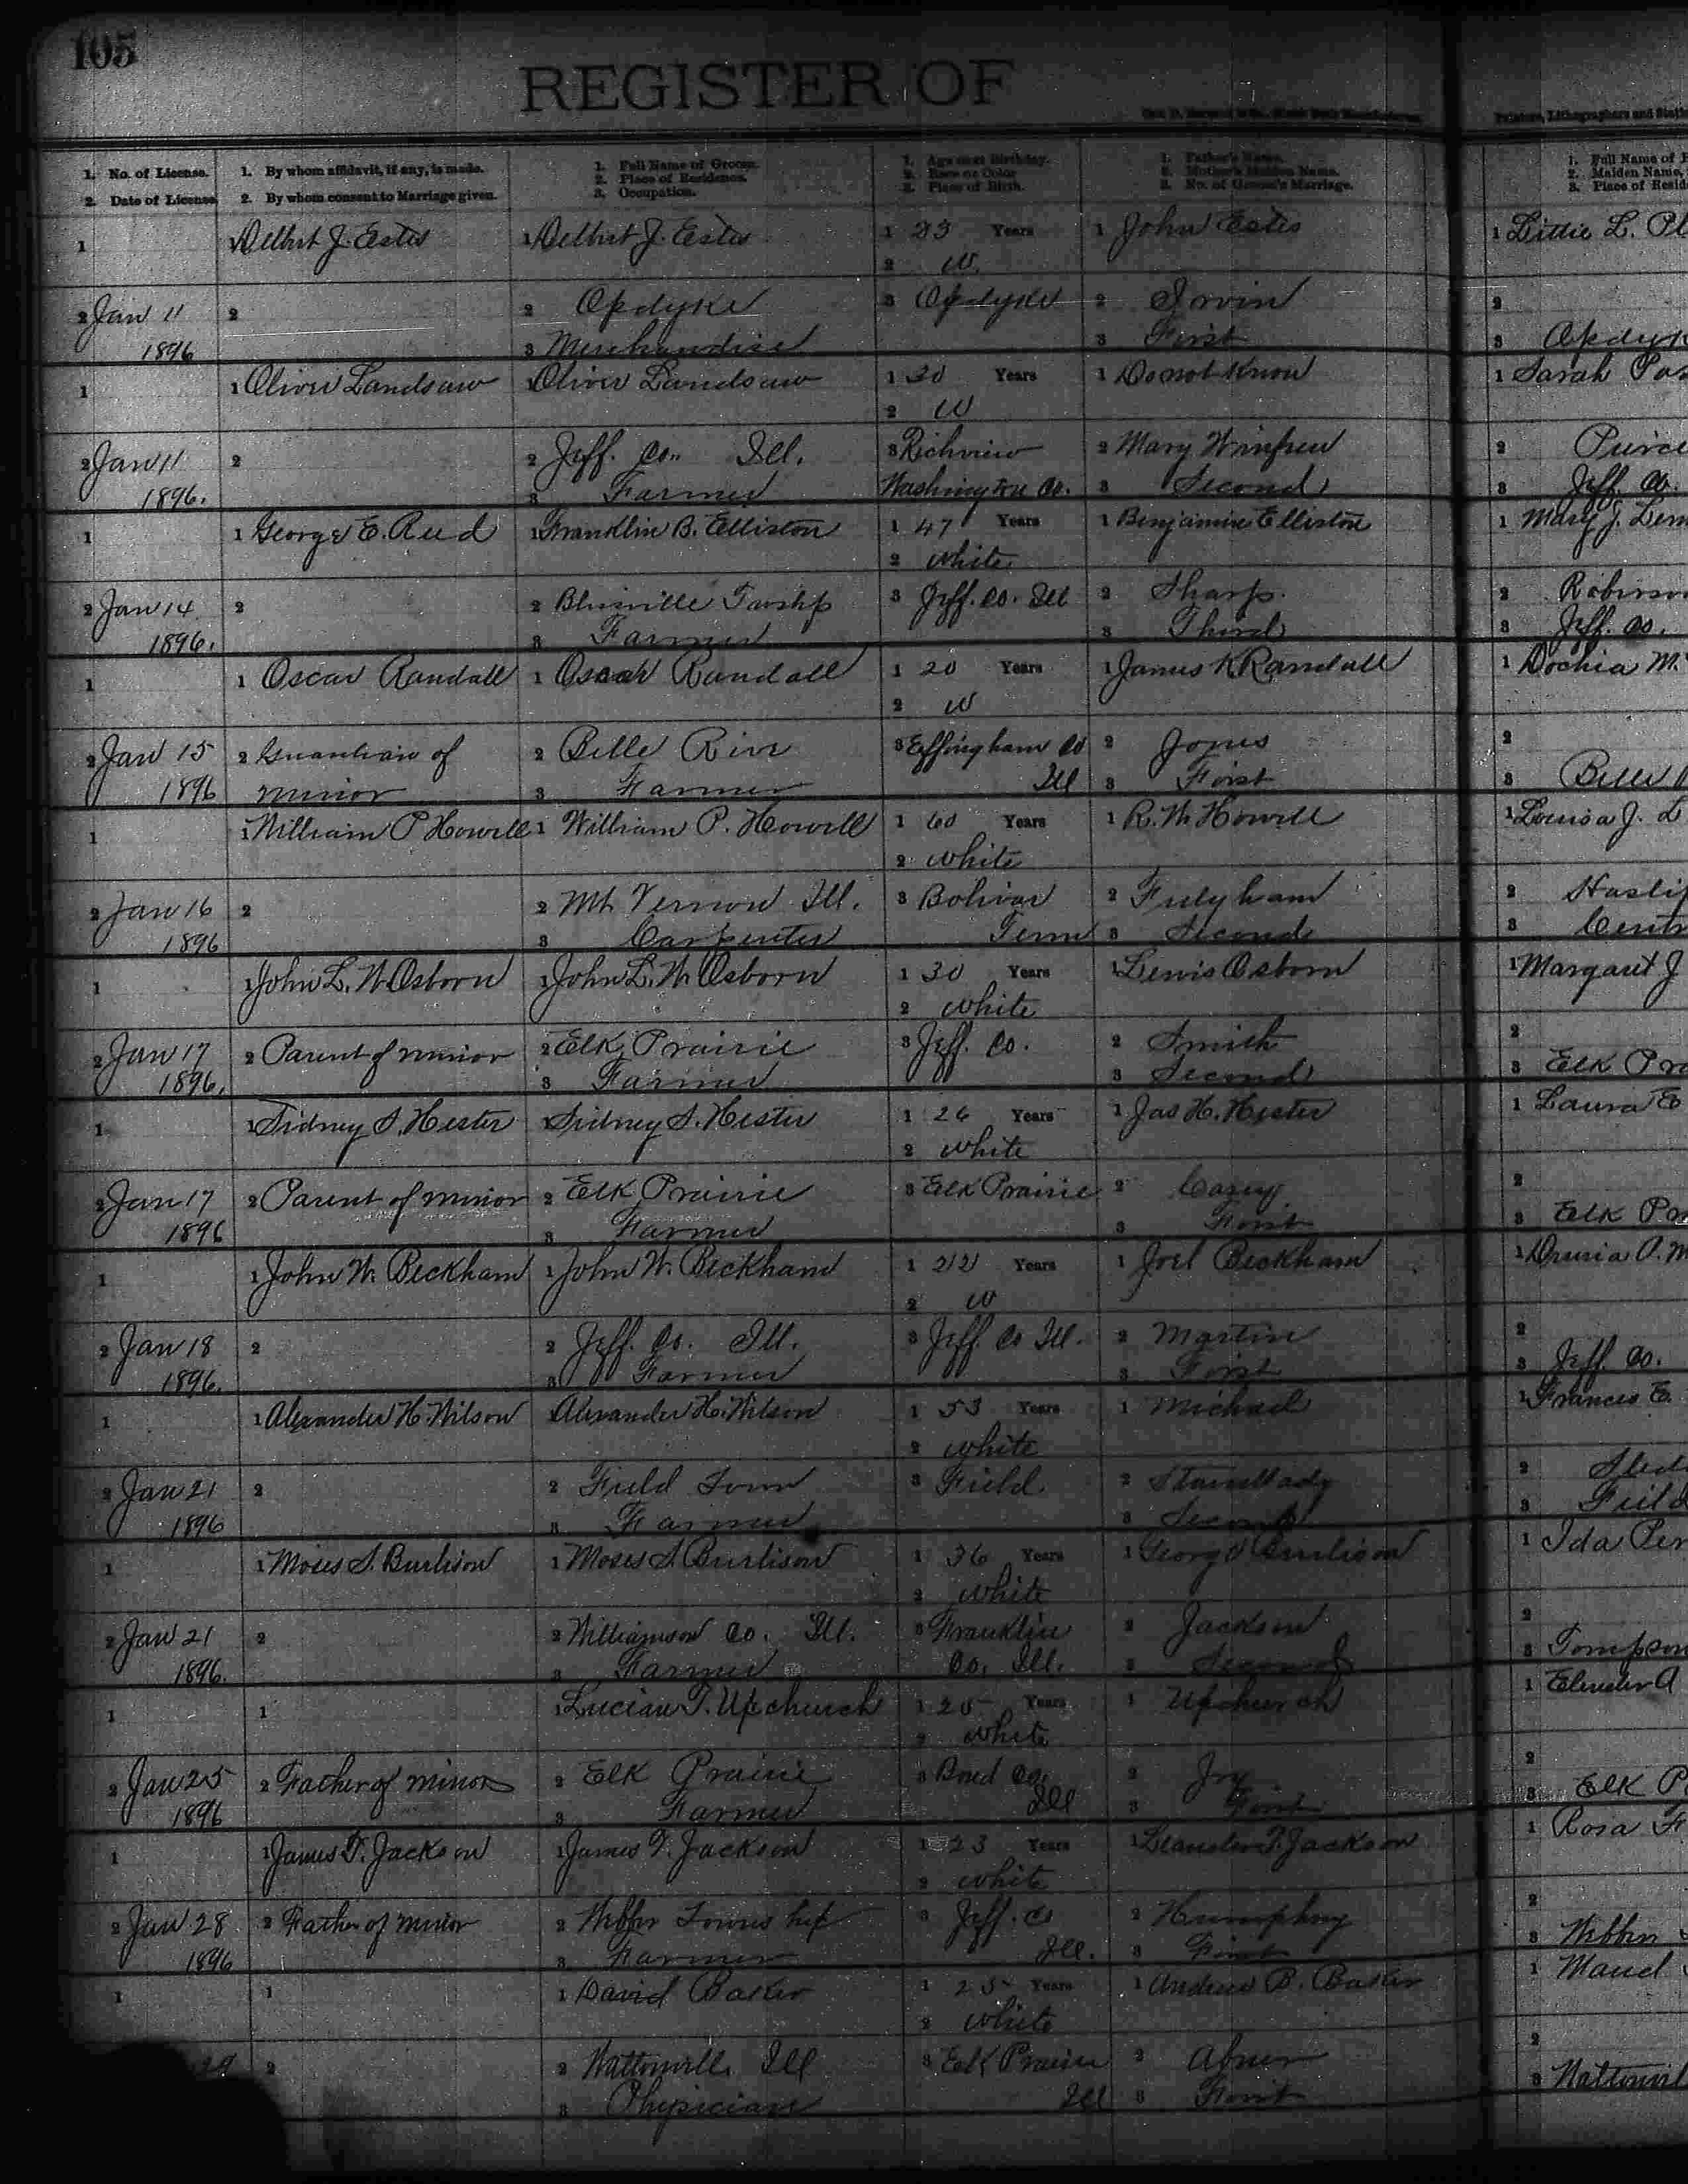 105
REGISTER OF
1. No. of License.
2. Date of License.
1. By whom affidavit, if any, is made.
2. By whom consent to Marriage given.
1. Full Name of Groom.
2. Place of Residence.
3. Occupation.
1. Age next Birthday.
2. Race or Color
3. Place of Birth.
1. Father's Name.
2. Mother's Maiden Name.
3. No. of Groom's Marriage.
1 1 Delbert J. Estes 1 Delbert J. Estes 1 23 Years 1 John Estes 1 Littie L.
2 W.
2 Jan 11 2 2 Opdyke 3 Opdyke 2 Irvin 2
1896 3 Merchandise 3 First 3
1 1 Oliver Landsaw 1 Oliver Landsaw 1 30 Years 1 Do not Know 1 Sarah
2 W
2 Jan 11 2 2 Jeff. Co. Ill. 3 Richview 2 Mary Winfrew 2
1896. 3 Farmer Washington Co. 3 Second 3 Jeff. Co.
1 1 George E. Reed 1 Franklin B. Elliston 1 47 Years 1 Benjamine Elliston 1 Mary J.
2 White
2 Jan 14 2 2 3 Jeff. Co. Ill 2 Sharp. 2
1896. 3 Farmer 3 Third 3 Jeff. Co.
1 1 Oscar Randall 1 Oscar Randall 1 20 Years 1 James K Randall 1 Dochia M.
2 W
2 Jan 15 2 Guardian of 2 Belle Rive 3 Effingham Co 2 Jones 2
1896 minor 3 Farmer Ill 3 First 3 Belle
1 1 William P Howell 1 William P. Howell 1 60 Years 1 R. W. Howell 1 Louisa J.
2 White
2 Jan 16 2 2 Mt Vernon Ill. 3 Bolivar 2 Fulgham 2
1896 3 Carpenter Tenn 3 Second 3
1 1 John L. W. Osborn 1 John L. W. Osborn 1 30 Years 1 Lewis Osborn 1 Margaret J
2 White
2 Jan 17 2 Parent of minor 2 Elk Prairie 3 Jeff. Co. 2 Smith 2
1896. 3 Farmer 3 Second 3 Elk
1 1 Sidney S. Hester 1 Sidney S. Hester 1 26 Years 1 Jas H. Hester 1 Laura E
2 White
2 Jan 17 2 Parent of minor 2 Elk Prairie 3 Elk Prairie 2 Casey 2
1896 3 Farmer 3 First 3 Elk
1 1 John W. Beckham 1 John W. Beckham 1 22 Years 1 Joel Beckham 1
2 W
2 Jan 18 2 2 Jeff. Co. Ill. 3 Jeff. Co Ill. 2 Martin 2
1896. 3 Farmer 3 First 3 Jeff Co.
1 1 Alexander H. Wilson Alexander H. Wilson 1 53 Years 1 Michael 1 Frances E.
2 White
2 Jan 21 2 2 Field Town 3 Field 2 2
1896 3 Farmer 3 Second 3 Field
1 1 Moses S. Burlison 1 Moses S. Burlison 1 36 Years 1 George Burlison 1 Ida
2 White
2 Jan 21 2 2 Williamson Co. Ill. 3 Franklin 2 Jackson 2
1896. 3 Farmer Co. Ill. 3 Second 3
1 1 1 Lucian T. Upchurch 1 25 Years 1 Upchurch 1
2 White
2 Jan 25 2 Father of minor 2 Elk Prairie 3 Bond Co. 2 2
1896 3 Farmer Ill 3 First 3 Elk
1 1 James T. Jackson 1 James T. Jackson 1 23 Years 1 Leander T. Jackson 1 Rosa
2 White
2 Jan 28 2 Father of minor 2 Webber Township 3 Jeff. Co 2 Humphrey 2
1896 3 Farmer Ill. 3 First 3 Webber
1 1 1 David Baker 1 25 Years 1 Andrew B. Baker 1 Maud
2 White
29 2 2 Waltonville Ill 3 Elk Prairie 2 Abner 2
3 Physician Ill 3 First 3